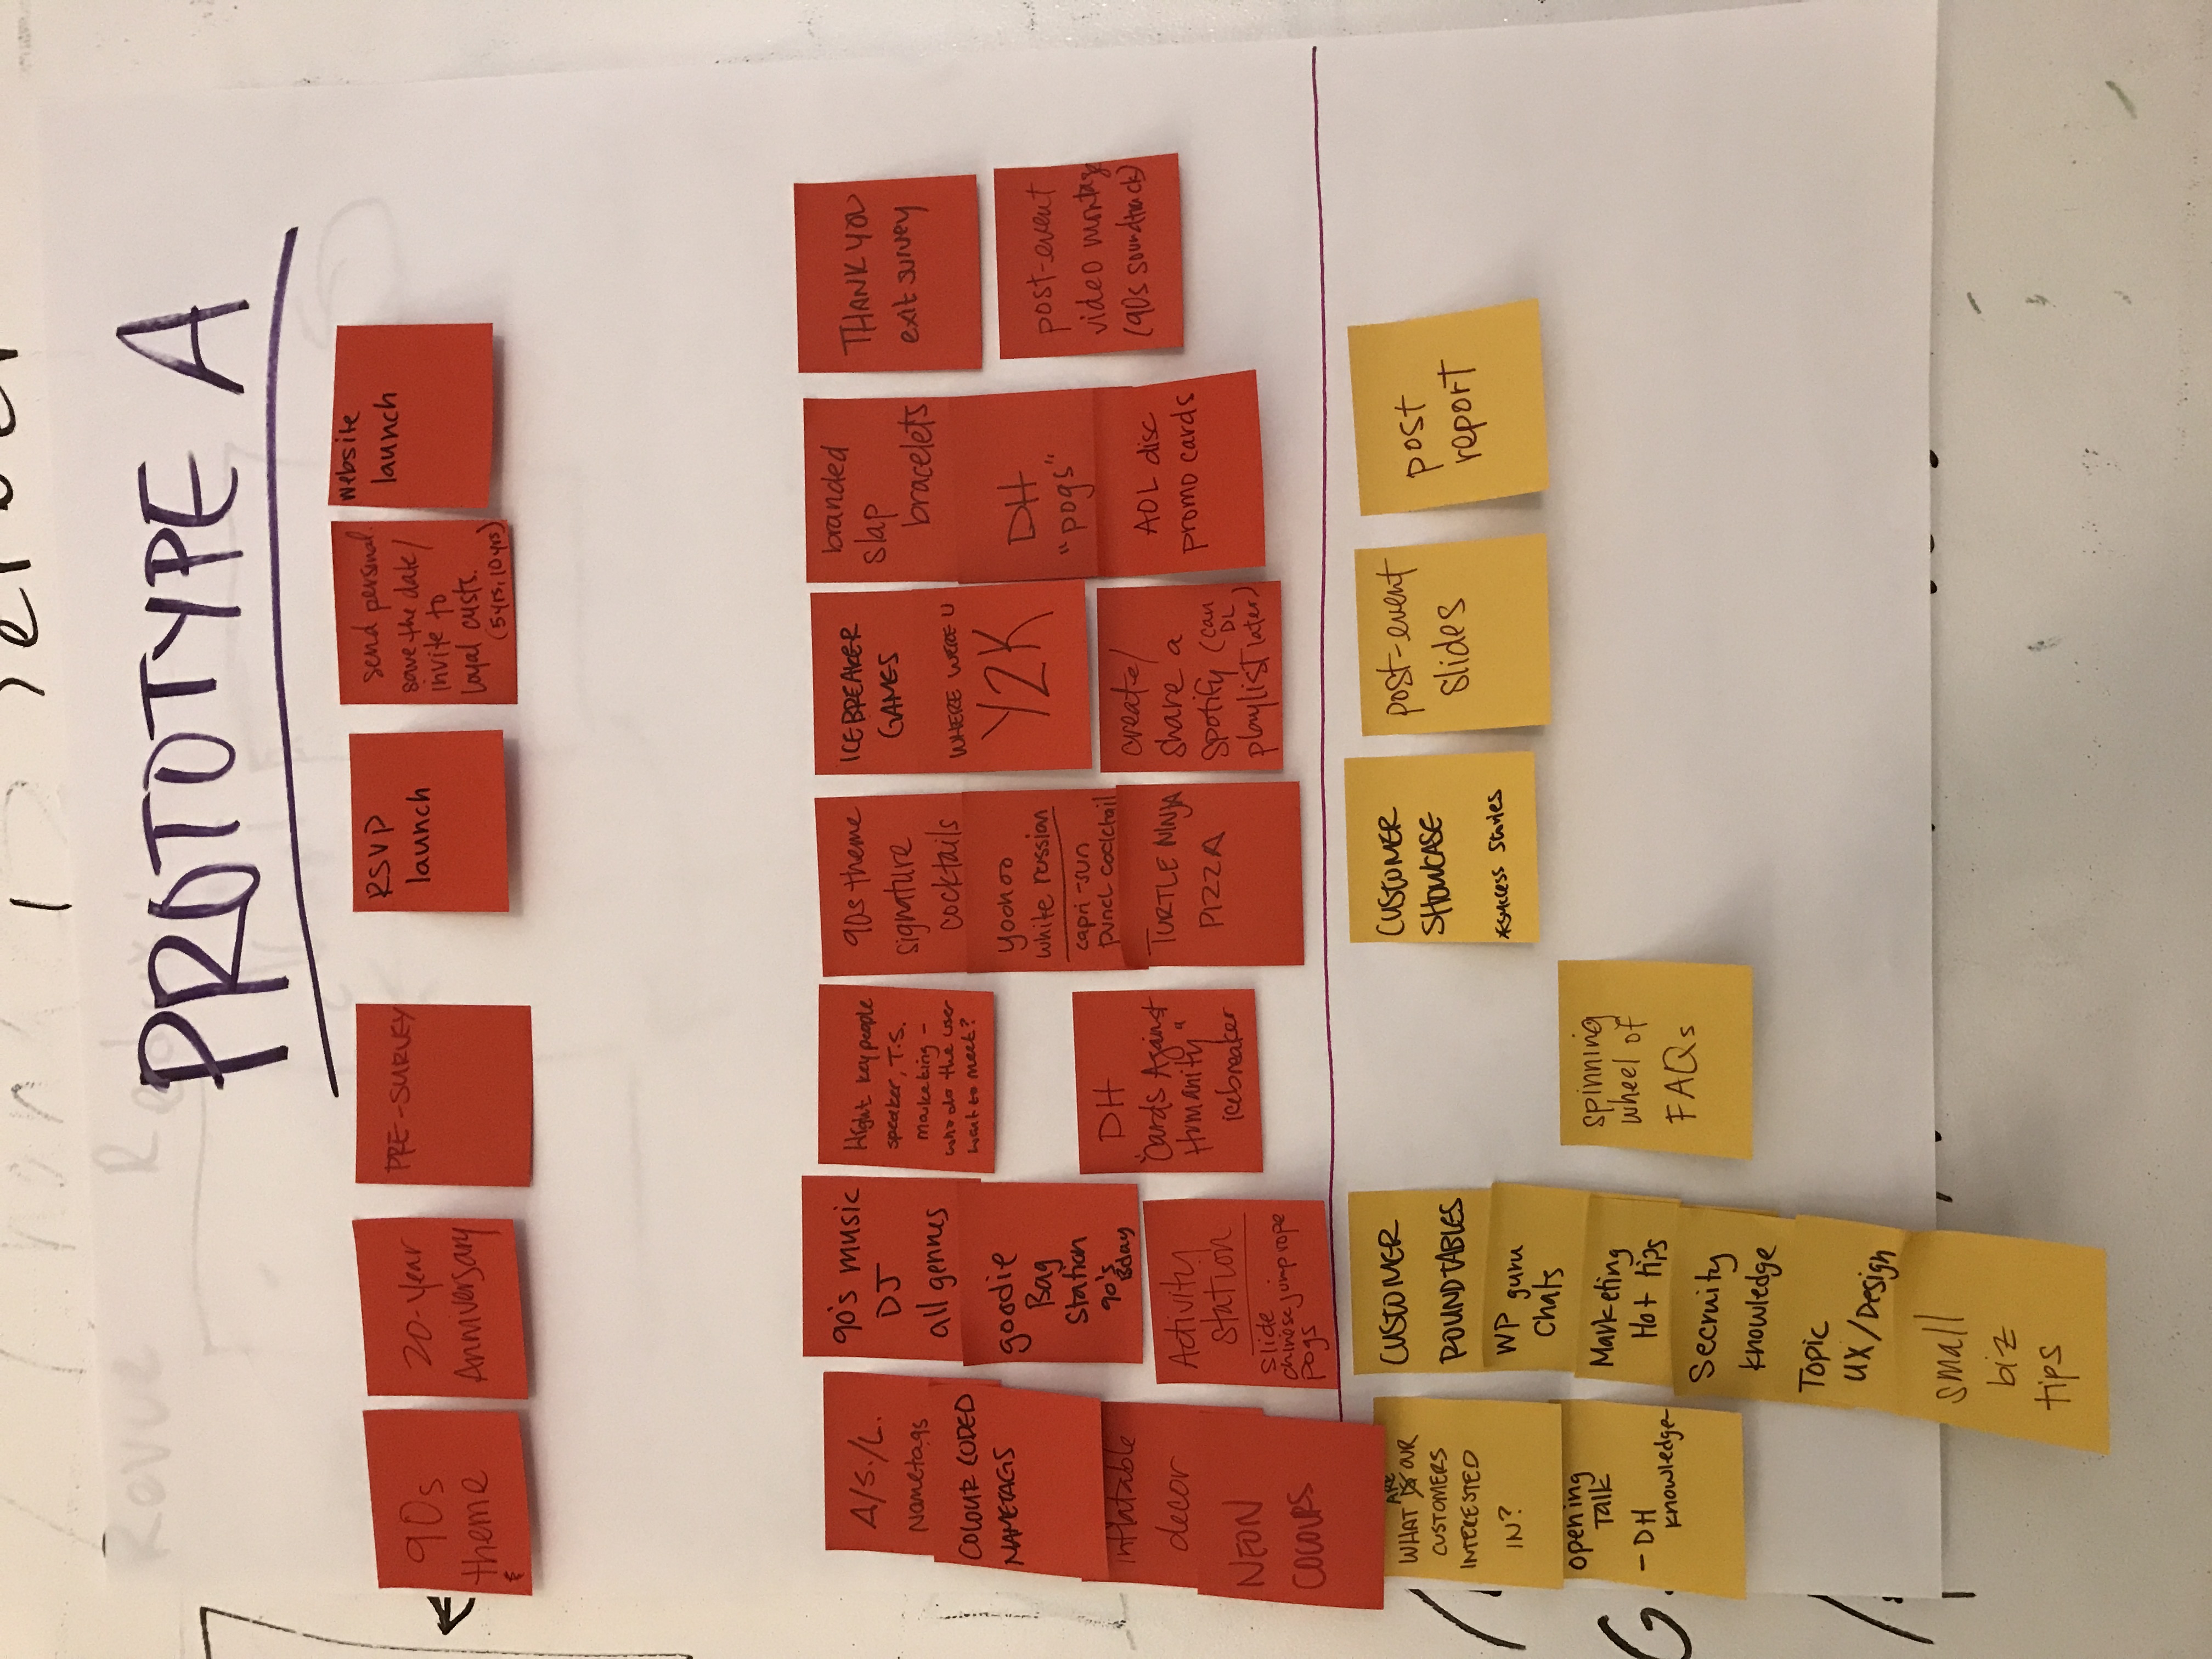 server
Revue
PROTOTYPE A
90s
theme
20-Year
Anniversary
PRE-SURVEY
RSVP
launch
send personal
save the date/
invite to
loyal custs.
(5yrs, 10yrs)
website
launch
A/S./L.
Nametags
COLOUR CODED
NAMETAGS
inflatable
decor
NEON
COLOURS
90's music
DJ
all genres
goodie
Bag
Station
90's
Bday
Activity
station
slide
chinese jump rope
pogs
key people
speaker, T.S.
marketing -
who do the user
want to meet?
DH
"Cards Against
Humanity"
icebreaker
90s theme
signature
cocktails
yoohoo
white russian
capri-sun
punch cocktail
TURTLE NINJA
PIZZA
ICEBREAKER
GAMES
WHERE WERE U
Y2K
create/
share a
spotify (can
DL
playlist later)
branded
slap
bracelets
DH
"pogs"
AOL disc
promo cards
THANK YOU
exit survey
post-event
video montage
(90s soundtrack)
ARE
WHAT IS OUR
CUSTOMERS
INTERESTED
IN?
opening
Talk
- DH
knowledge-
CUSTOMER
ROUNDTABLES
WP guru
Chats
Marketing
Hot tips
Secruity
knowledge
Topic
UX/Design
small
biz
tips
spinning
wheel of
FAQs
CUSTOMER
SHOWCASE
*success stories
post-event
slides
post
report
G.